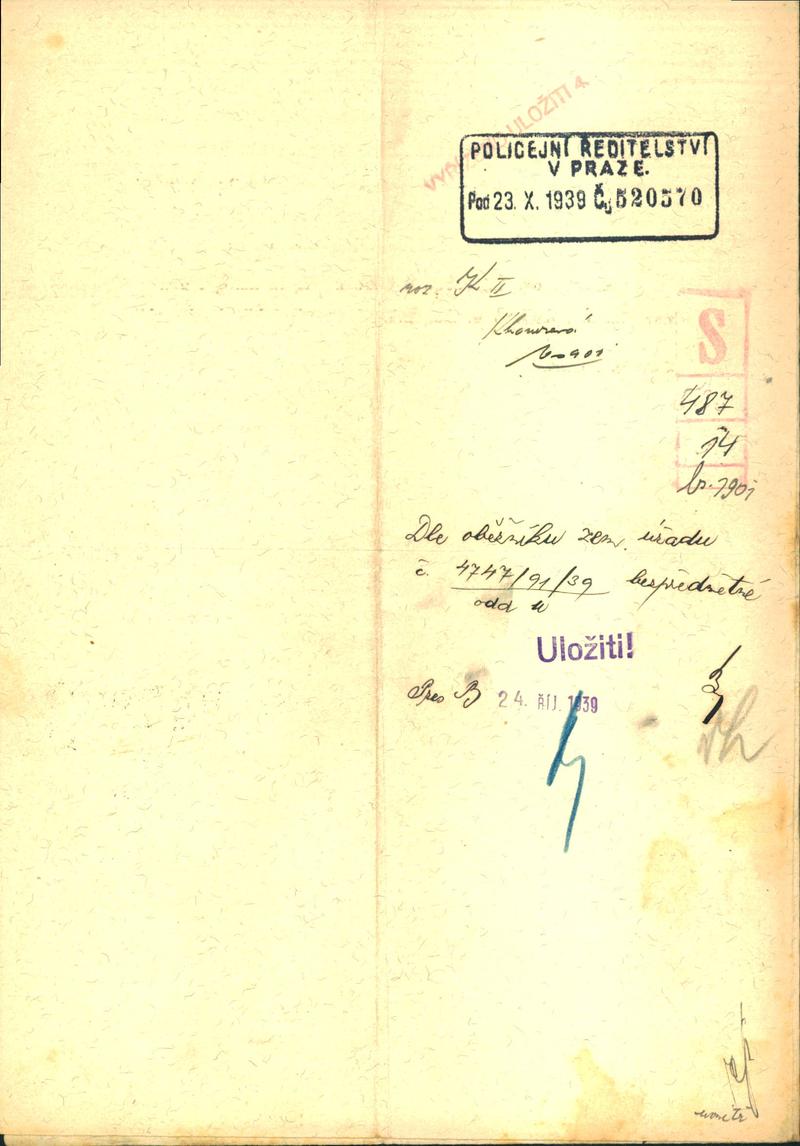 ULOŽITI 4.
POLICEJNÍ ŘEDITELSTVÍ
V PRAZE.
Pod 23. X. 1939 Čj 520570
K II
S
487
14
br. 1901
Dle oběžníku zem. úřadu
č. 4747/91/39 bezpředmětné
odd
Uložiti!
Pres B 24. ŘÍJ. 1939